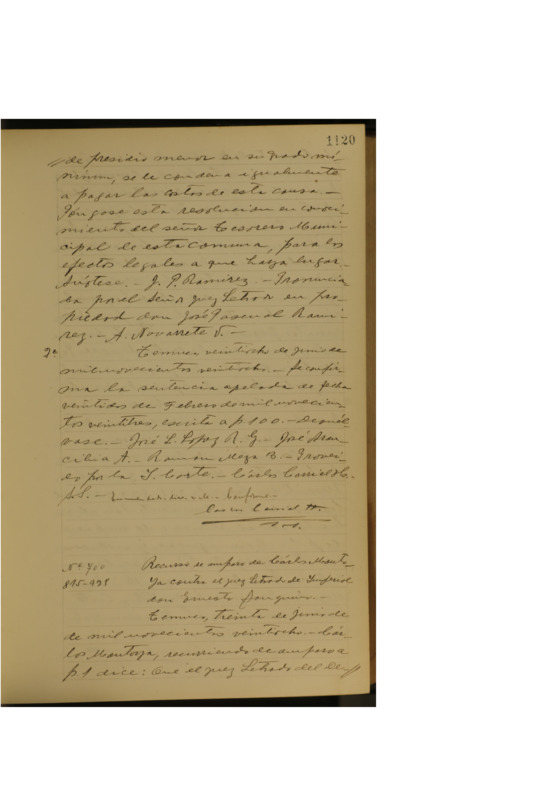 1120
de presidio menor en su grado mí-
nimum, se le condena igualmente
a pagar las costos de esta causa.-
Póngase esta resolucion en conoci-
miento del señor Tesorero Muni-
cipal de esta comuna, para los
efectos legales a que haya lugar.
Anótese.- J. P. Ramírez.- Pronuncia
da por el Señor Juez Letrado en pro
piedad don José Pascual Ramí-
rez.- A. Navarrete V.-
2a Temuco veintiocho de Junio de
mil novecientos veintiocho.- Se confir
ma la sentencia apelada de fecha
veintidos de Febrero de mil novecien-
tos veintitres, escrita a f. 100.- Devuél
vase.- José L. Lopez R. G.- José
A.- Ramon Meza B.- Provei-
do por la I. Corte.- Cárlos Carriel H.
S.S.- Conforme.-
Carlos Carriel H.
Nº 700 Recurso de amparo de Cárlos Monto-
815-995 ya contra el juez Letrado de Imperial
don Ernesto
Temuco, treinta de Junio de
de mil novecientos veintiocho.- Cár-
los Montoya, recurriendo de amparo a
f. 1 dice: Que el juez Letrado del De